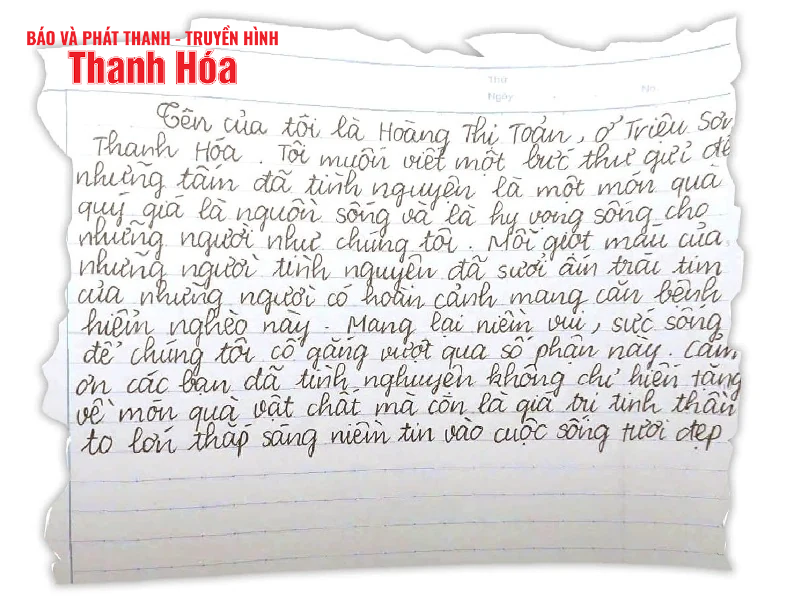 BÁO VÀ PHÁT THANH - TRUYỀN HÌNH
Thanh Hóa
Thứ
Ngày
No.
Tên của tôi là Hoàng Thị Toản, ở Triệu Sơn
Thanh Hóa. Tôi muốn viết một bức thư gửi đế
những tấm đã tình nguyện là một món quà
quý giá là nguồn sống và là hy vong sông cho
những người như chúng tôi. Mỗi giọt máu của
những người tình nguyện đã sưởi ấm trái tim
của những người có hoàn cảnh mang căn bệnh
hiểm nghèo này. Mang lại niềm vui, sức sống
để chúng tôi cố gắng vượt qua số phận này. Cảm
ơn các bạn đã tình nghuyện không chỉ hiến tặng
về món quà vật chất mà còn là giá trị tinh thần
to lớn thắp sáng niềm tin vào cuộc sống tươi đẹp